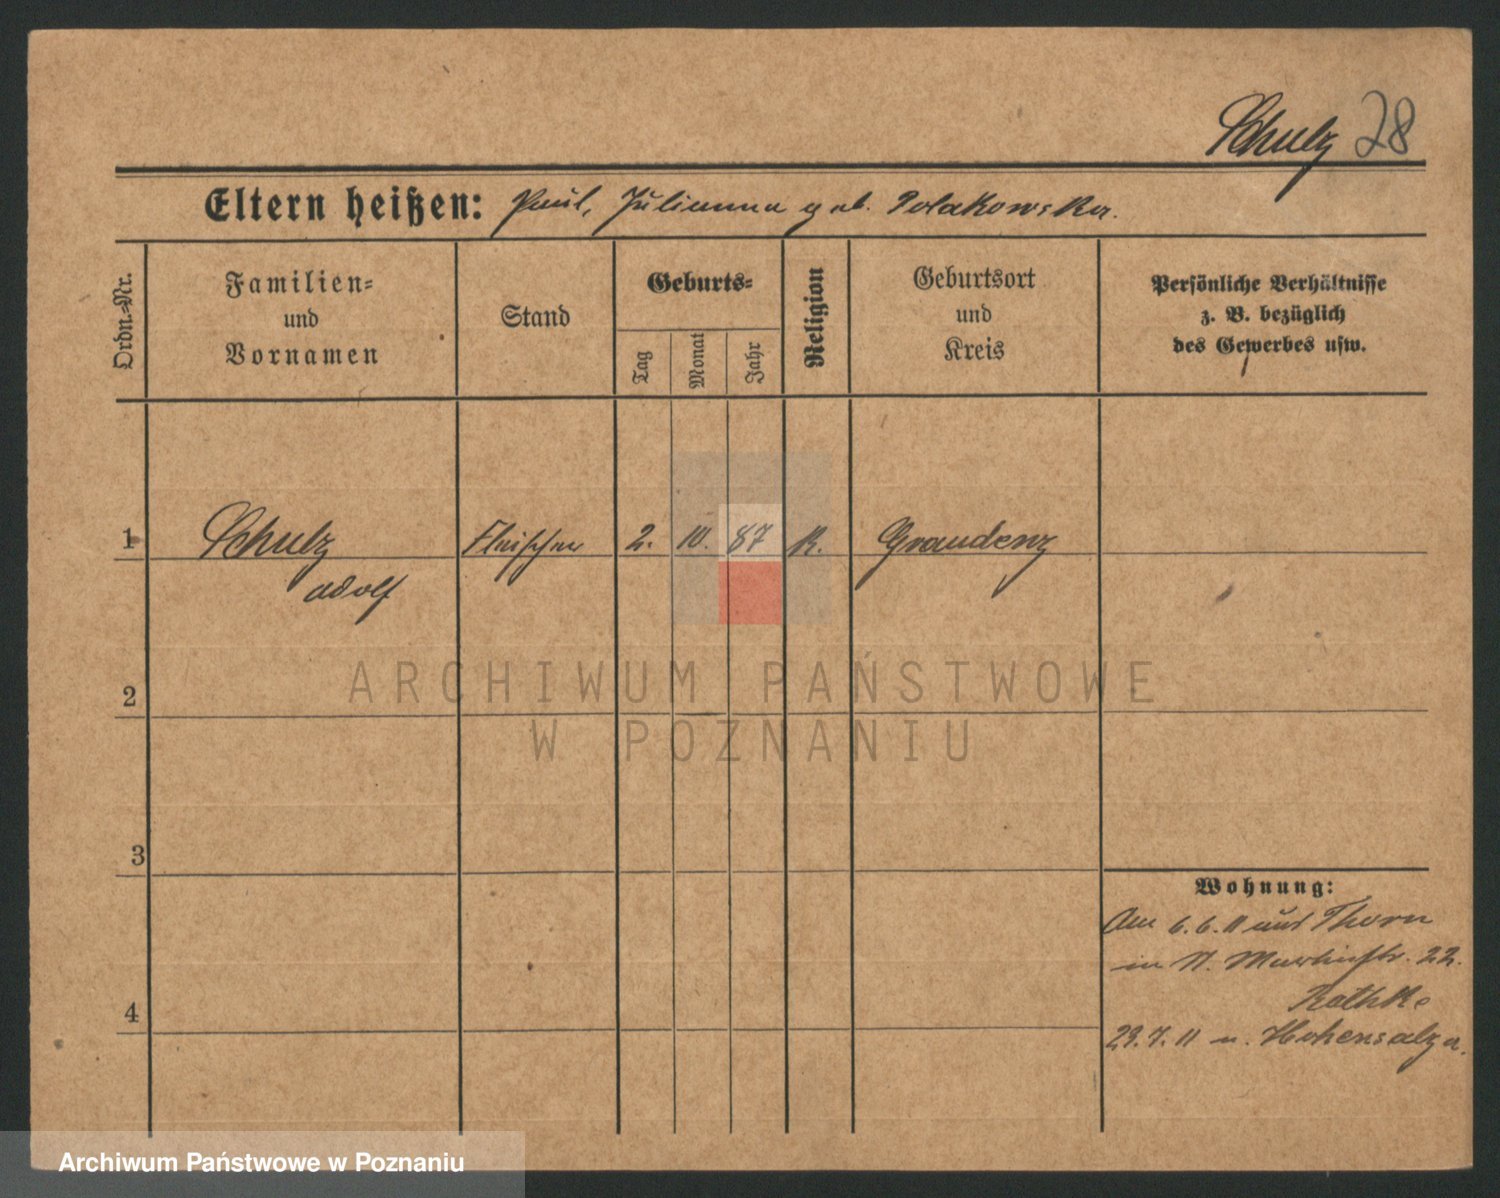 Schulz 28
Eltern heißen: Paul, Julianna geb. Polakowska.
Ordn.-Nr.
Familien-
und
Vornamen
Stand
Geburts-
Tag
Monat
Jahr
Religion
Geburtsort
und
Kreis
Persönliche Verhältnisse
z. B. bezüglich
des Gewerbes usw.
1 Schulz Fleischer 2. 10. 87 K. Graudenz
Adolf
2
ARCHIWUM PAŃSTWOWE
W POZNANIU
3
Wohnung:
Am 6.6.11 aus Thorn
in St. Martinstr. 22.
Rathke
4
29.7.11 n. Hohensalza.
Archiwum Państwowe w Poznaniu